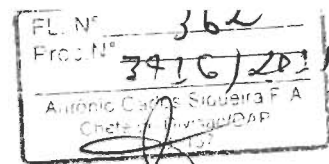 FL. Nº 362
Proc. Nº 3916/201
Antônio Carlos Siqueira F. A
Chefe